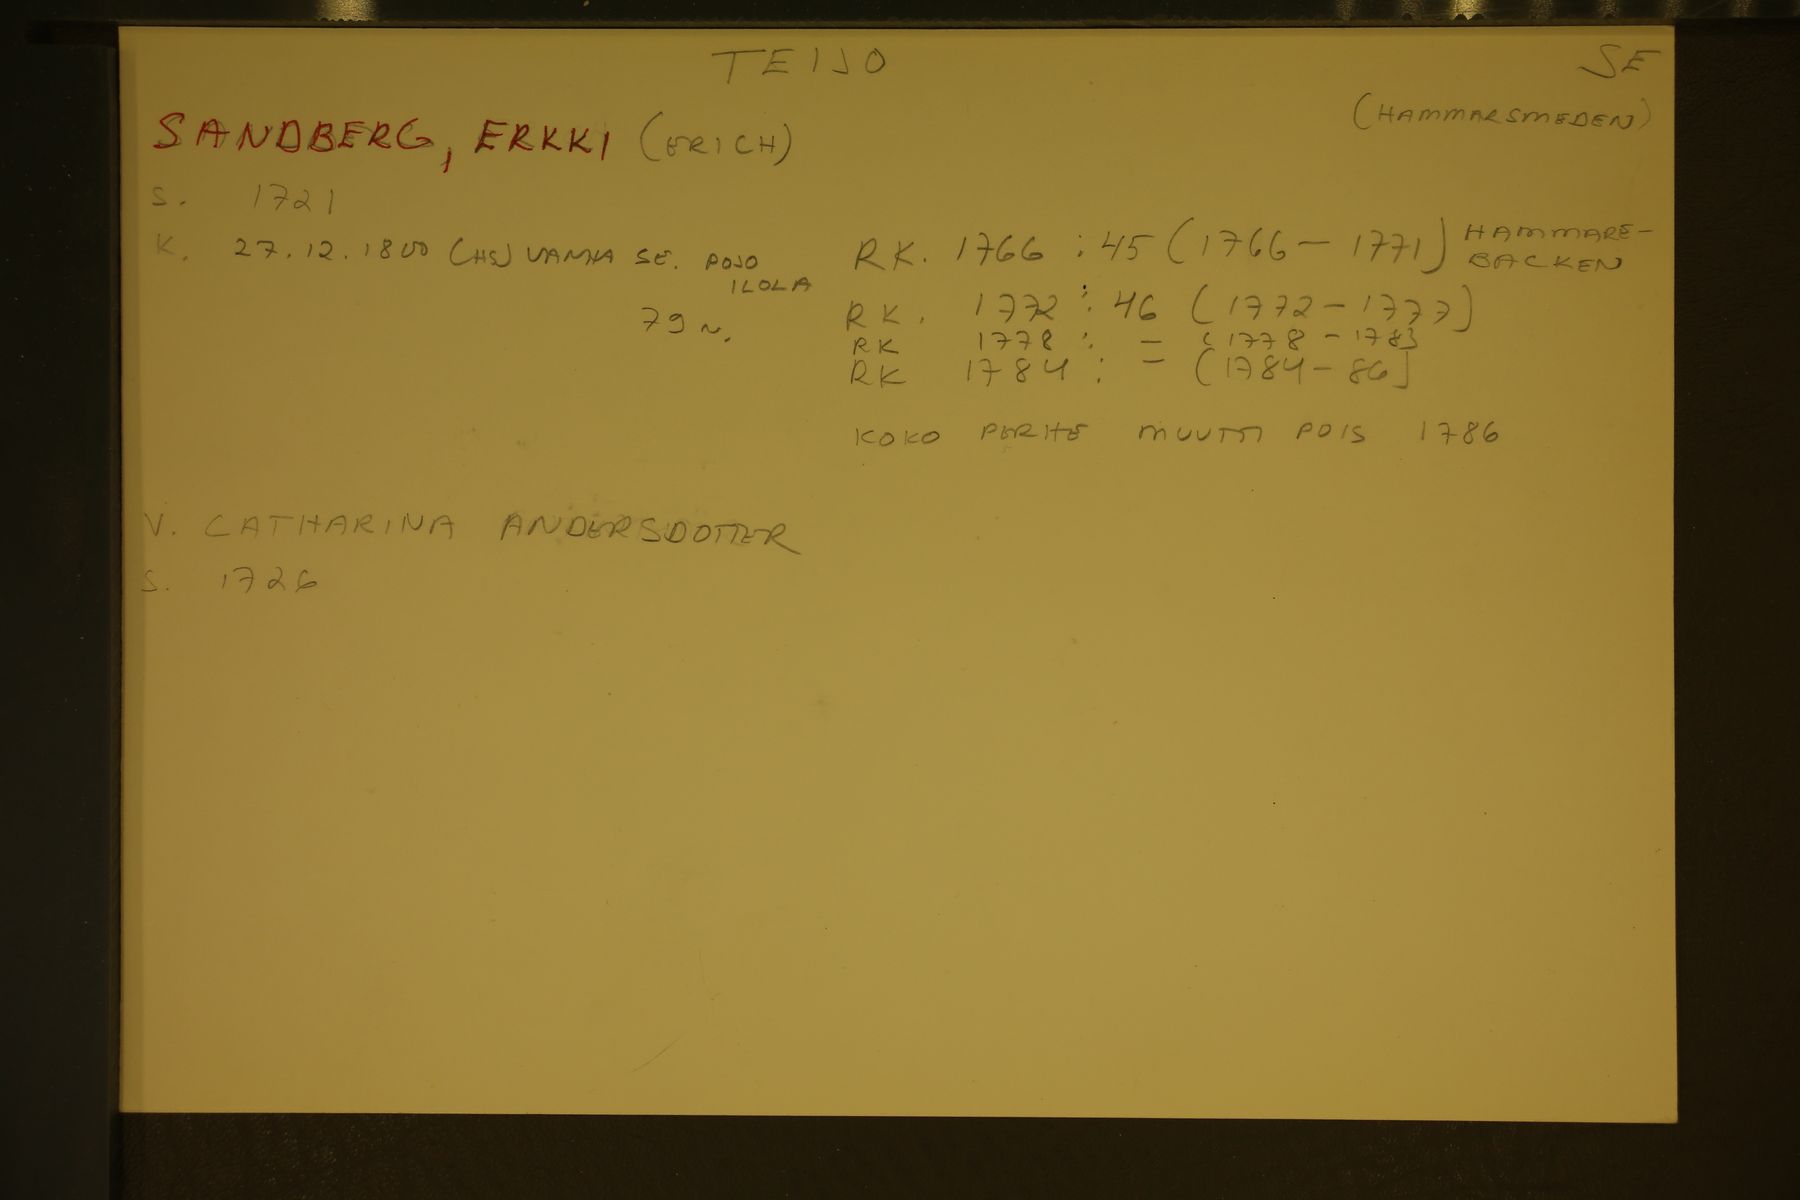 TEIJO
SE
(HAMMARSMEDEN)
SANDBERG, ERKKI (ERICH)
S. 1721
K. 27.12.1800 (HS) VANHA SE. POJO
ILOLA
79 v.
RK. 1766 : 45 (1766 - 1771) HAMMARE-
BACKEN
RK. 1772 : 46 (1772 - 1777)
RK 1778 : = (1778 - 1783
RK 1784 : = (1784 - 86)
KOKO PERHE MUUTTI POIS 1786
V. CATHARINA ANDERSDOTTER
S. 1726